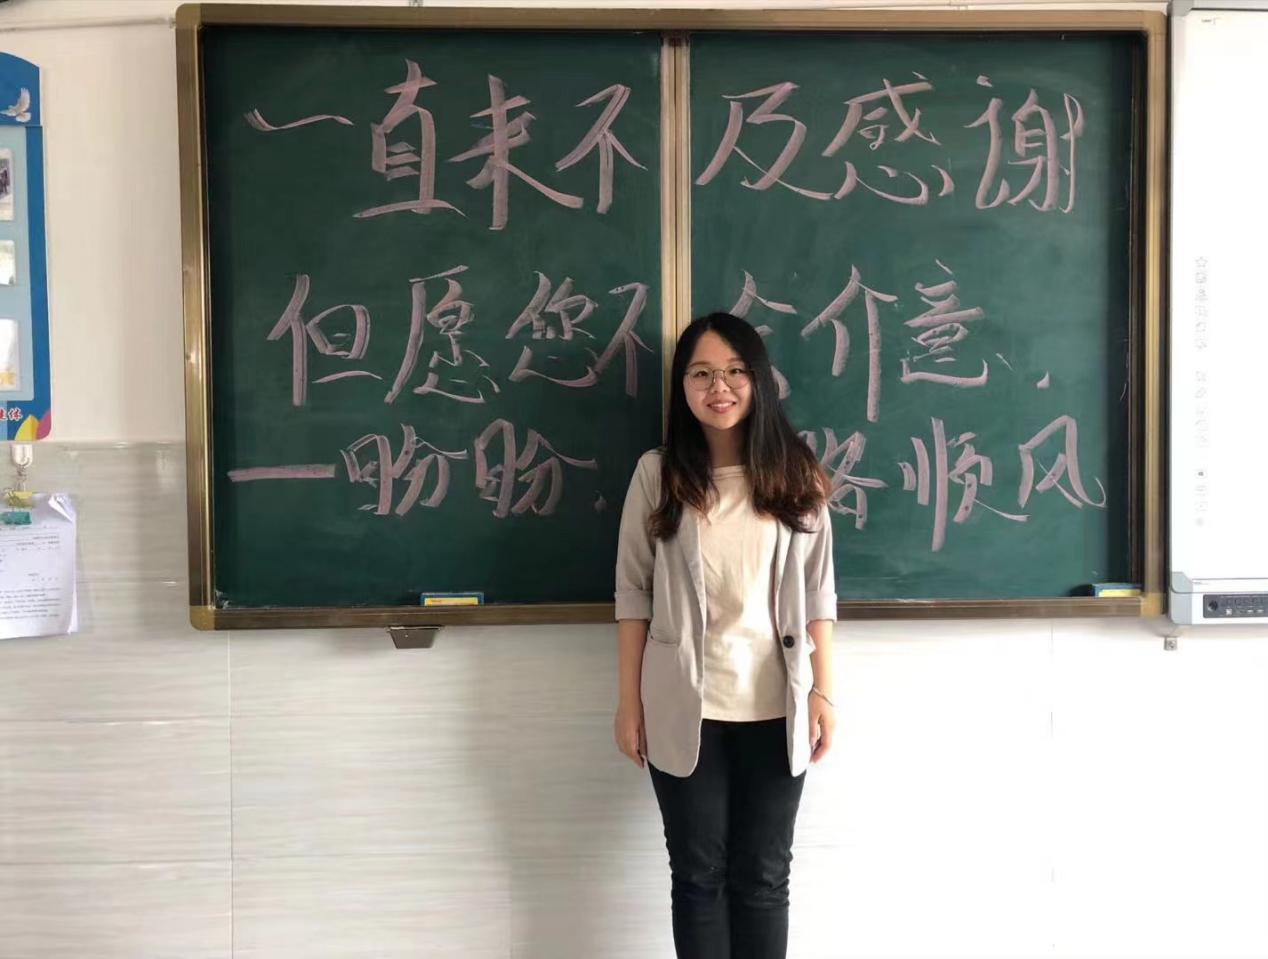 一直来不及感谢
但愿您不会介意.
一盼盼. 路顺风
体